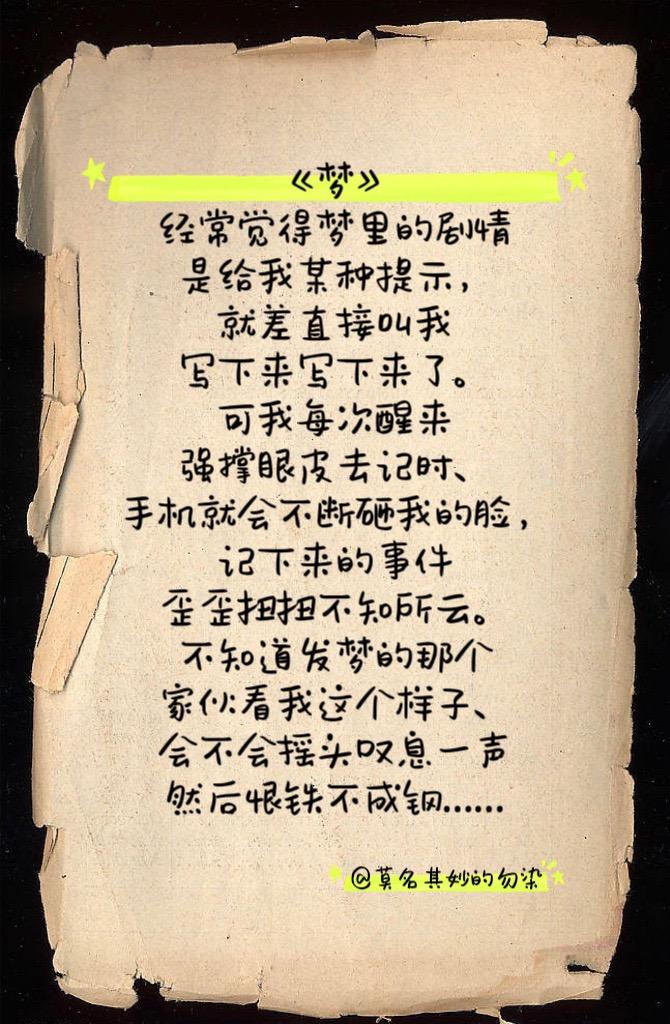 《梦》
经常觉得梦里的剧情
是给我某种提示，
就差直接叫我
写下来写下来了。
可我每次醒来
强撑眼皮去记时、
手机就会不断砸我的脸，
记下来的事件
歪歪扭扭不知所云。
不知道发梦的那个
家伙看我这个样子、
会不会摇头叹息一声
然后恨铁不成钢……
@莫名其妙的勿染